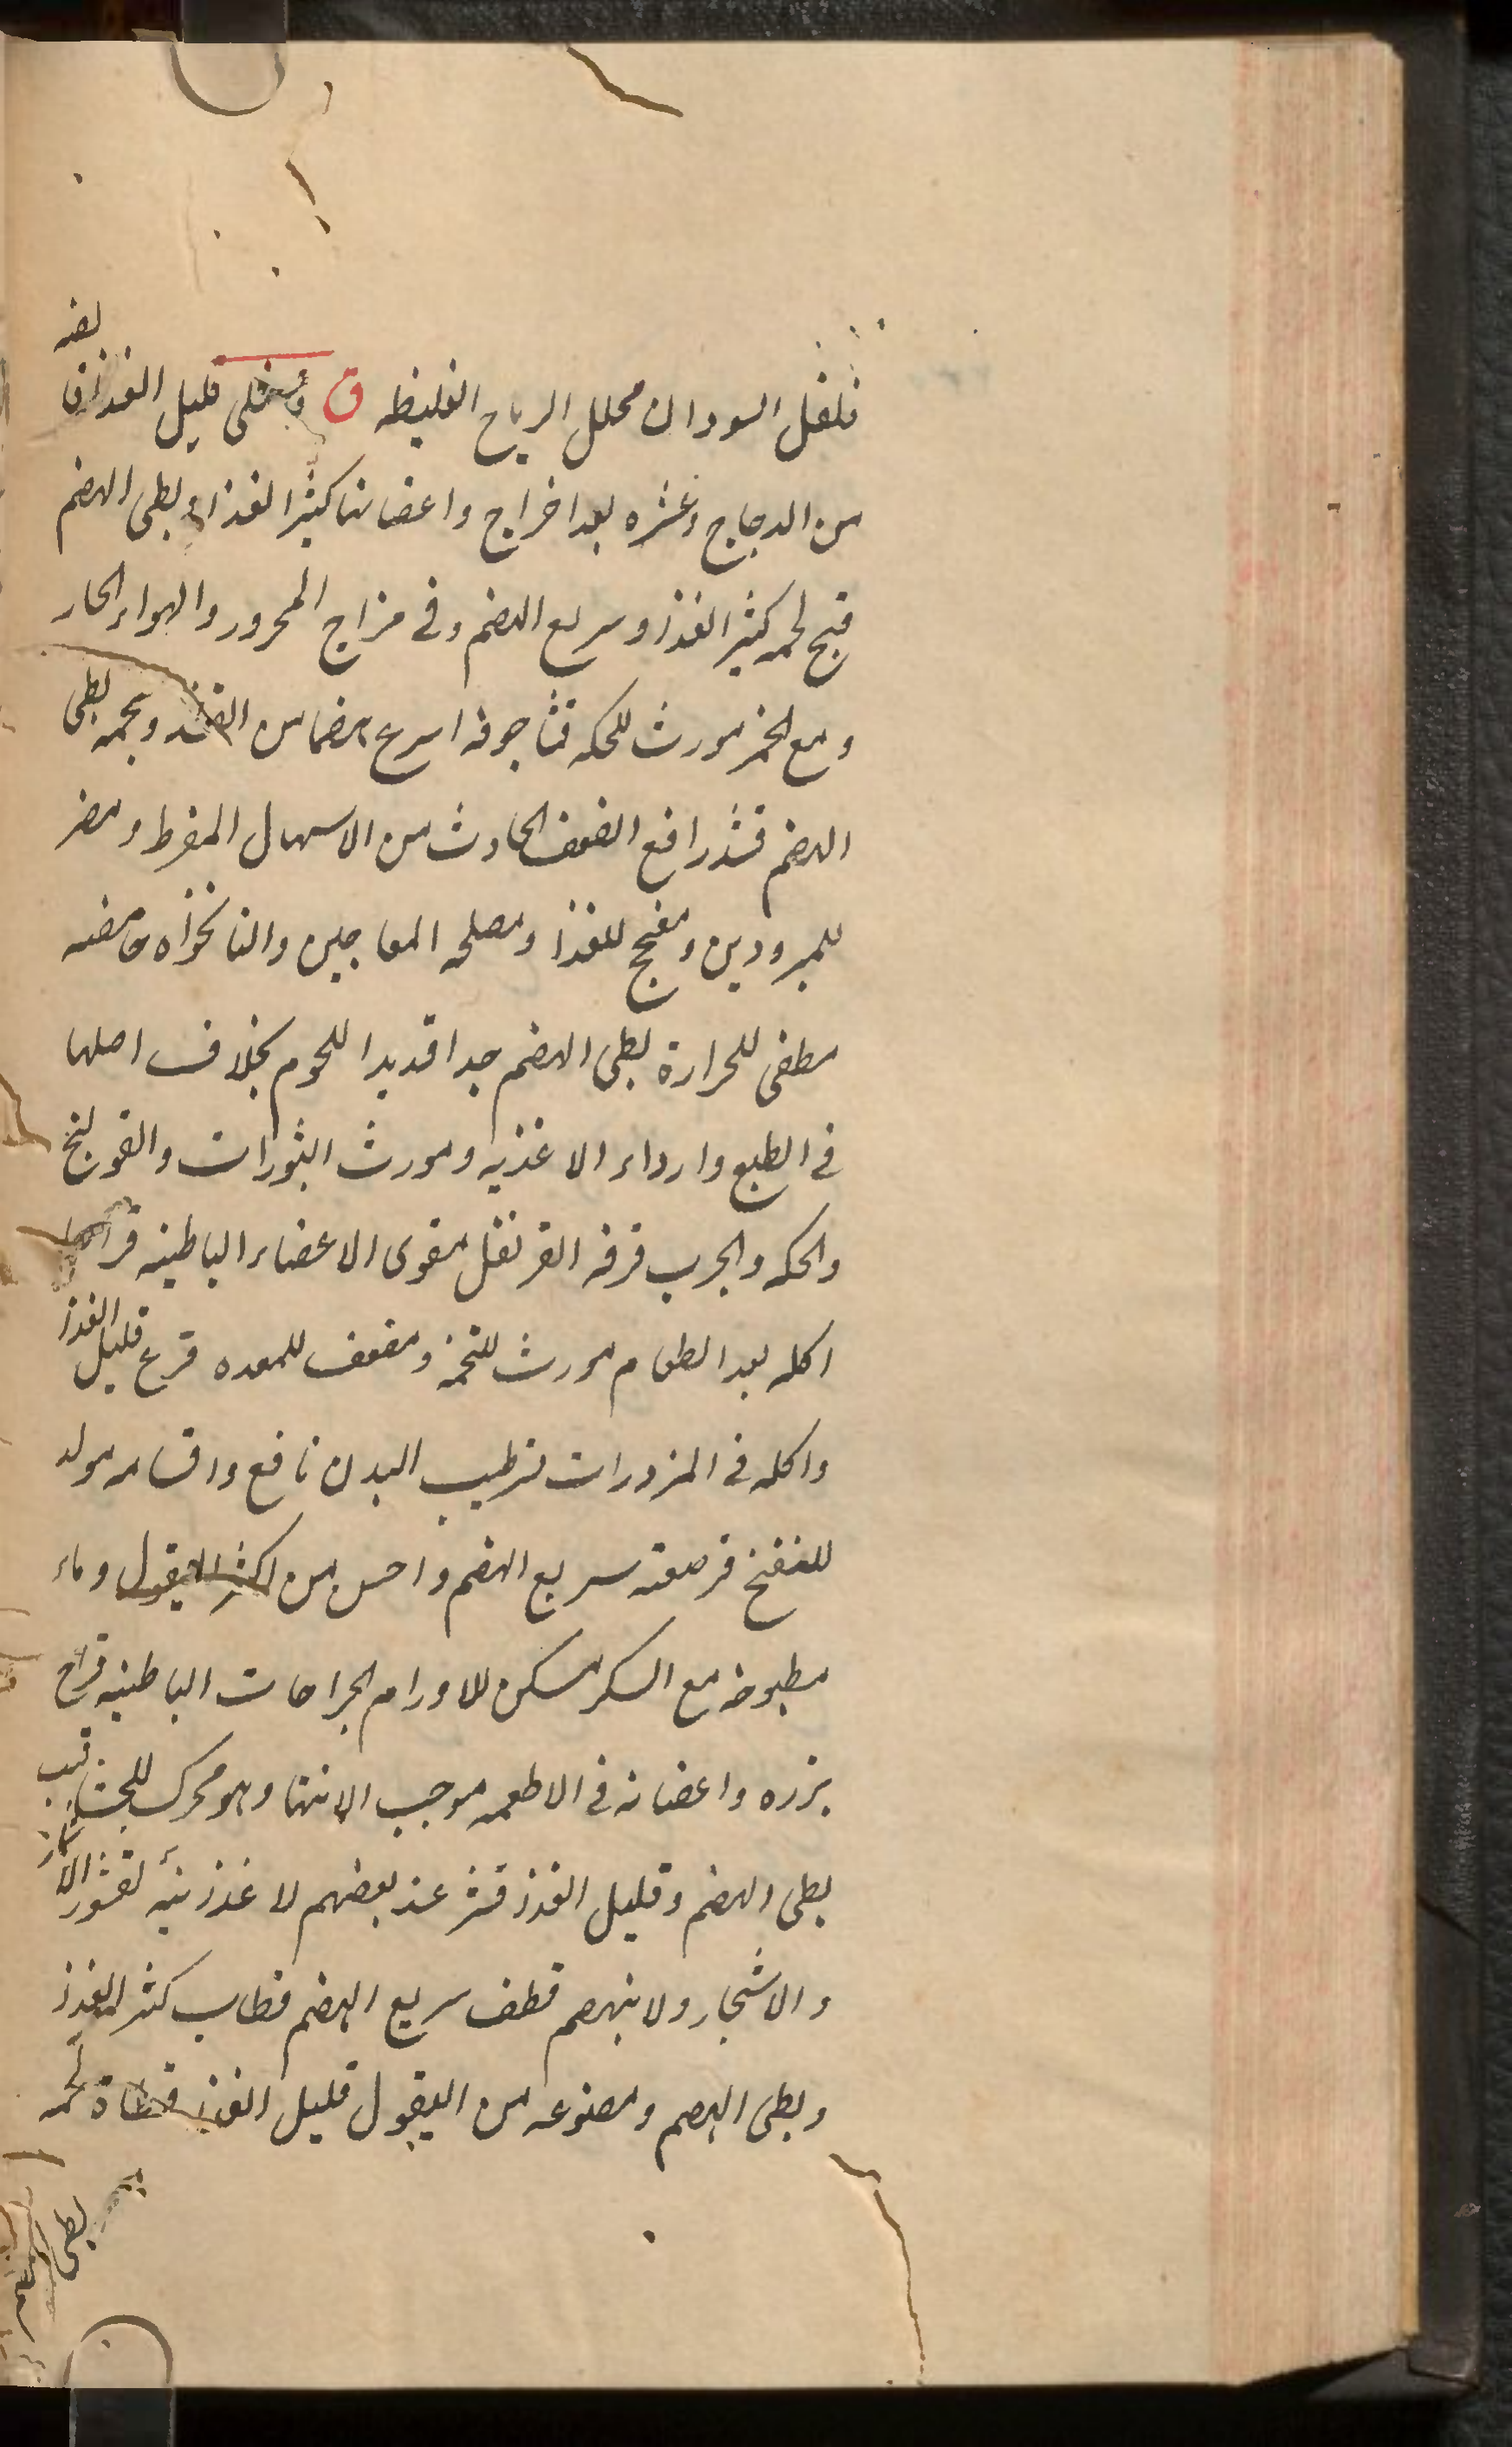 فلفل السودان محلل الرياح الغليظه ق قليل الغذا قا
لضه
من الدجاج وغيره بعد اخراج واعضائنا كثير الغذا وبطى الهضم
قبج لحمه كثير الغذا وسريع الهضم وفى مزاج المحرور والهواء الحار
ومع الخمر مورث للحكه قثا جوفه اسرع هضما من ولحمه بطى
الهضم قثد رافع الضعف الحادث من الاسهال المفرط ومضر
للمبرودين ومفجج للغذا ومصلحه المعاجين والنانخواه حامضه
مطفى للحرارة بطى الهضم جدا قديدا للحوم بخلاف اصلها
فى الطبع وارداء الاغذيه ومورث البثورات والقولنج
والحكه والجرب قرفه القرنفل مقوى الاعضاء الباطنيه
اكله بعد الطعام مورث للتخمه ومضعف للمعده قرع قليل الغذا
واكله فى المزورات ترطيب البدن نافع واقسامه مولد
للنفخ قرصعنه سريع الهضم واحسن من اكثر البقول وماء
مطبوخه مع السكر مسكن للاورام الجراحات الباطنيه قزاح
بزره واعضانه فى الاطعمه موجب الاشتها وهو محرك للجشا قب
بطى الهضم وقليل الغذا قشر عند بعضهم لا غذائية لقشور الاثمار
والاشجار ولا ينهضم قطف سريع الهضم قطاب كثير الغذا
وبطى الهضم ومصنوعه من البقول قليل الغذا قطاة لحمه
بطى الهضم